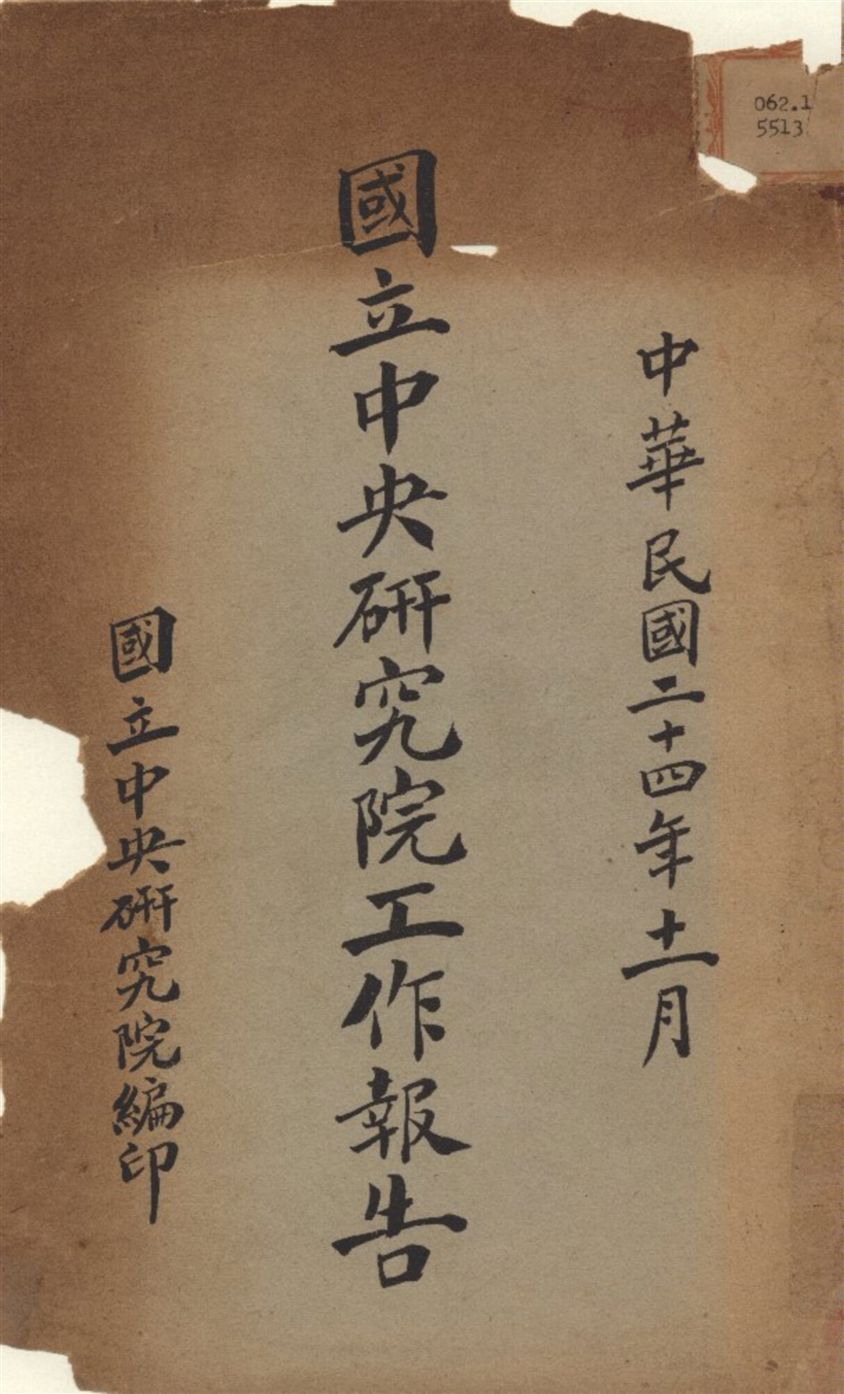 062.1
5513
中華民國二十四年十一月
國立中央研究院工作報告
國立中央研究院編印